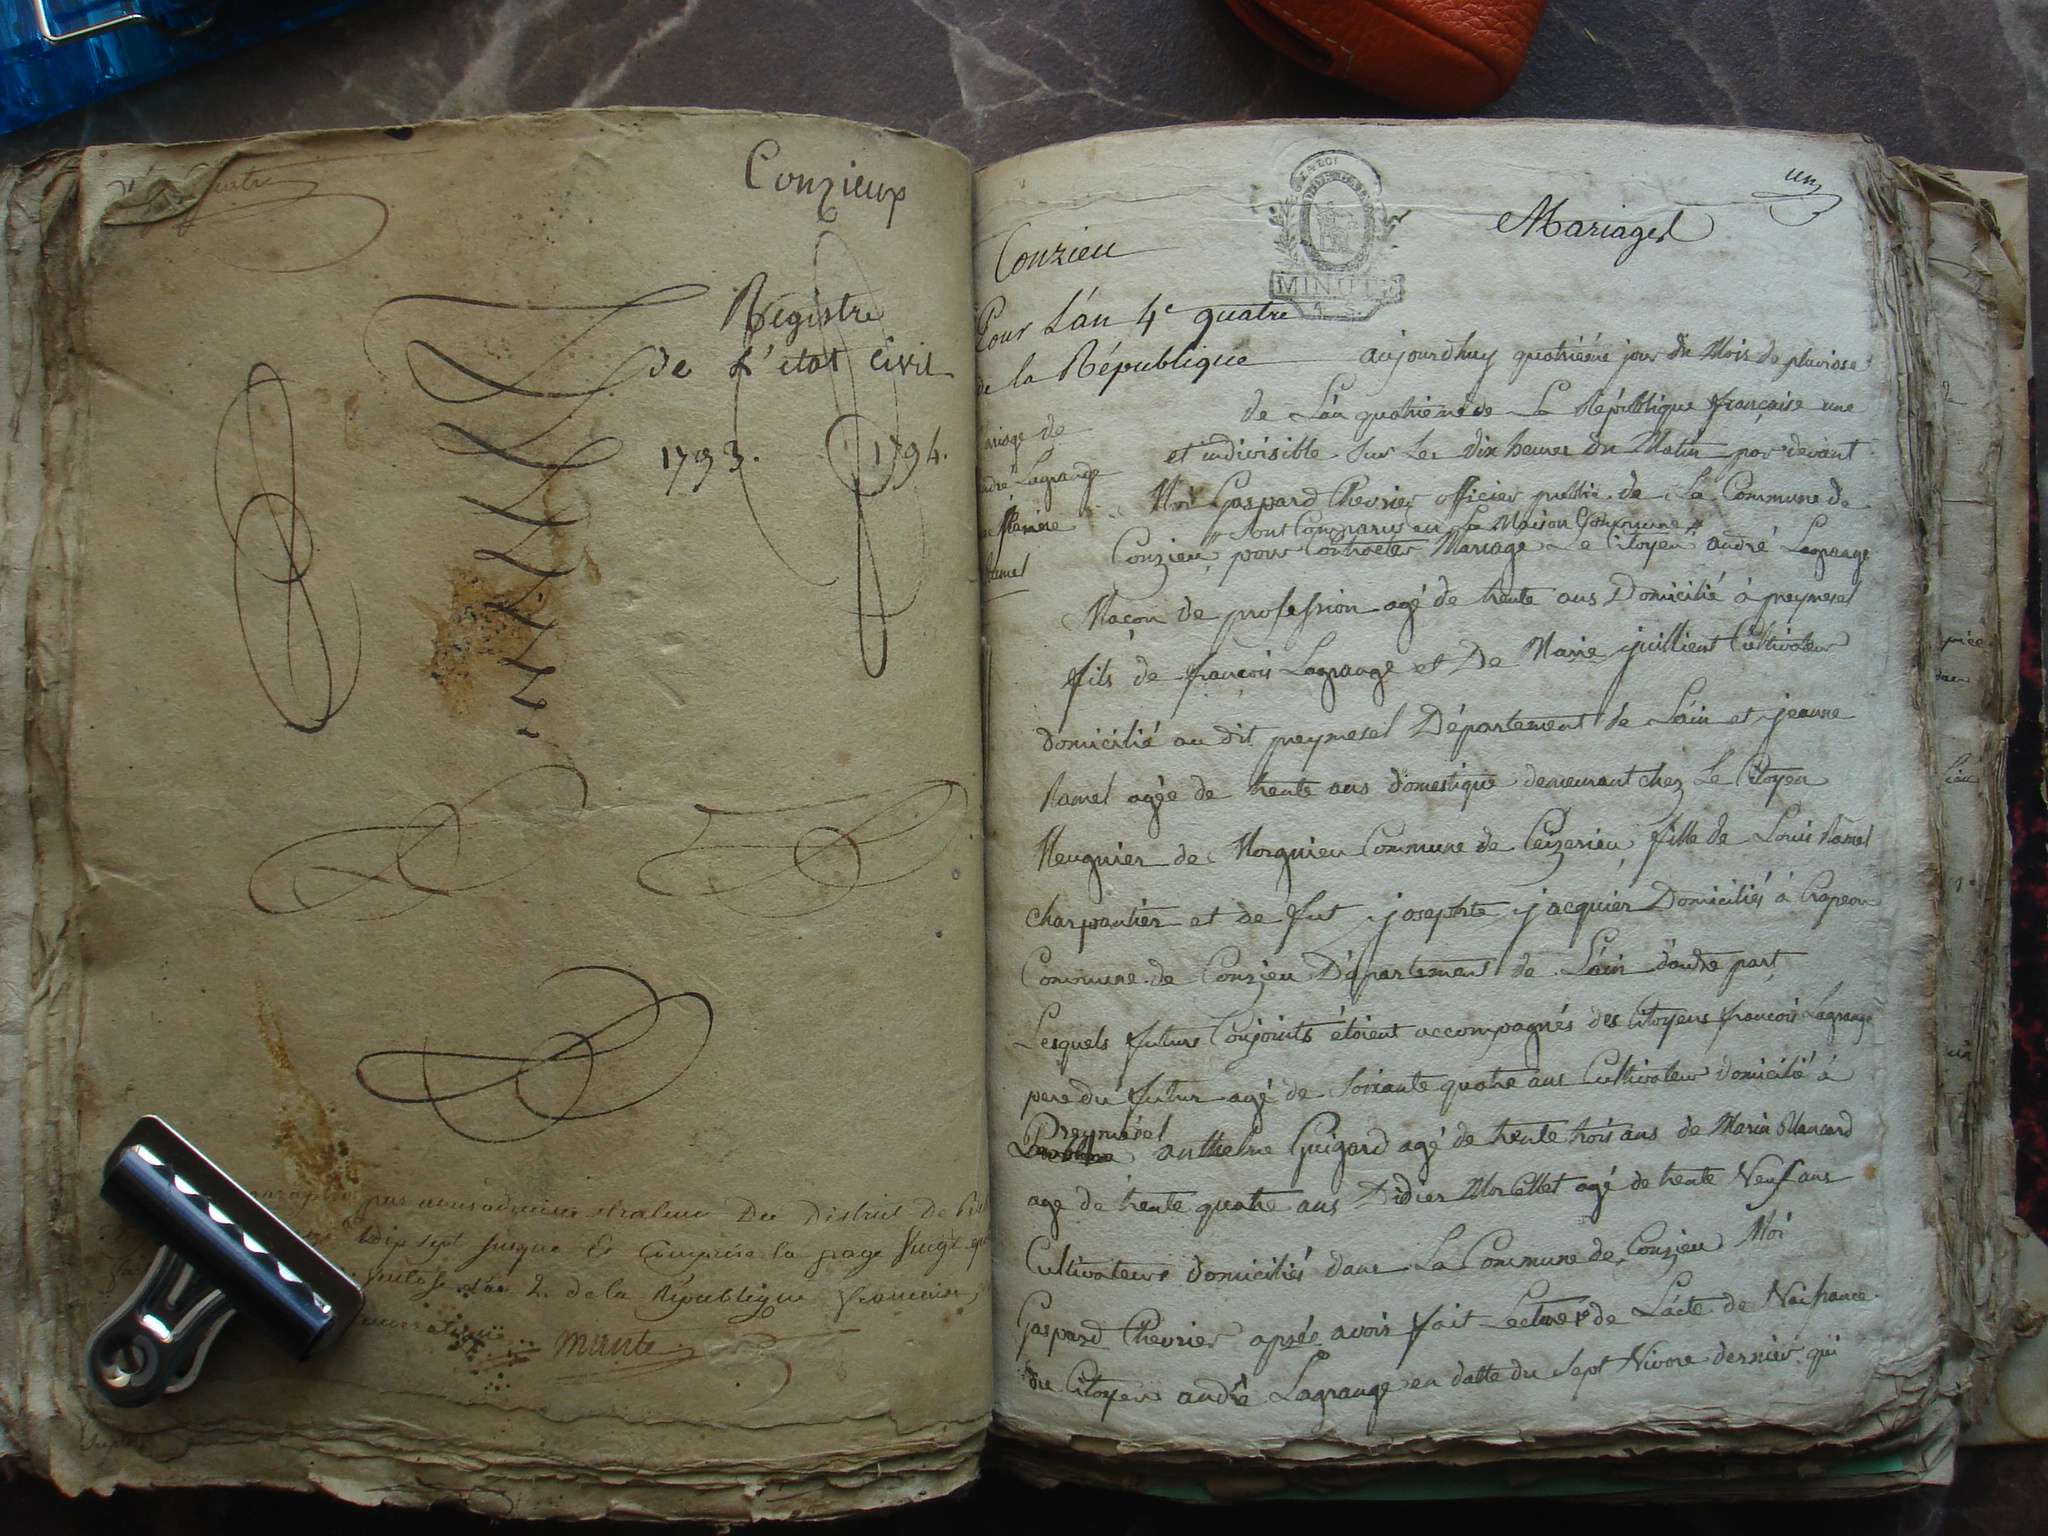 Conzieux
Registre
de L'état Civil
1793. 1794.
par nous administrateur Du District de
dix sept jusque Et Comprise la page Vingt
L'an 2. de la République
Munte
un
Mariages
MINUTE
Conzieu
Pour L'an 4e quatre
de la République
Lagrange
aujourdhuy quatriéme jour du Mois de pluviose
de L'an quatrieme de La République françaíse une
et indivisible Sur Les dix heures du Matin par devant
Moi Gaspard Chevrier officier public de La Commune de
Sont Comparus en La Maison Commune
Conzieu pour Contracter Mariage Le Citoyen andré Lagrange
Maçon de profession agé de trente ans Domicilié à preymesel
fils de françois Lagrange et De Marie juillient Cultivateur
domicilié au dit preymesel Département de L'ain et jeanne
Ramel agée de trente ans domestique demeurant chez Le Citoyen
Meugnier de Morgnieu Commune de Ceizerieu fille de Louis Ramel
charpantier et de fut josephte jacquier Domiciliés à Crapeou
Commune de Conzieu Département de L'ain d'autre part
Lesquels futurs Conjoints étoient accompagnés des Citoyens françois Lagrange
pere du futur agé de Soixante quatre ans Cultivateur domicilié à
Preymesel
anthelme Guigard agé de trente trois ans de Marin Blancard
age de trente quatre ans Didier Morcellet agé de trente Neuf ans
Cultivateurs domiciliés dans La Commune de Conzieu Moi
Gaspard Chevrier après avoir fait Lecture de L'acte de Naissance
du Citoyen andré Lagrange en datte du Sept Nivose dernier qui